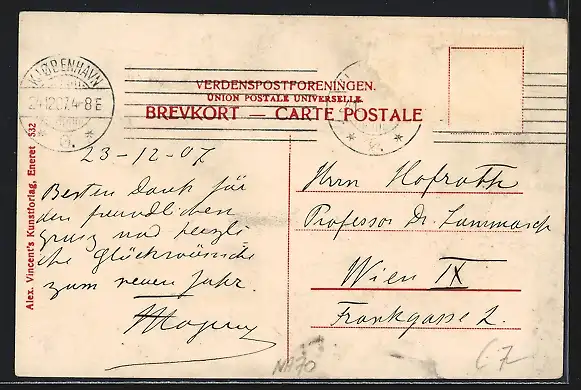 KJØBENHAVN
24.12.07. 4-8 E
VERDENSPOSTFORENINGEN.
UNION POSTALE UNIVERSELLE.
BREVKORT — CARTE POSTALE
Alex. Vincent's Kunstforlag, Eneret 532
23-12-07
Besten Dank für
den freundlichen
Gruss und herzli-
che Glückwünsche
zum neuen Jahr.
Herrn Hofrath
Professor Dr. Lammasch
Wien IX
Frankgasse 2.
NA70